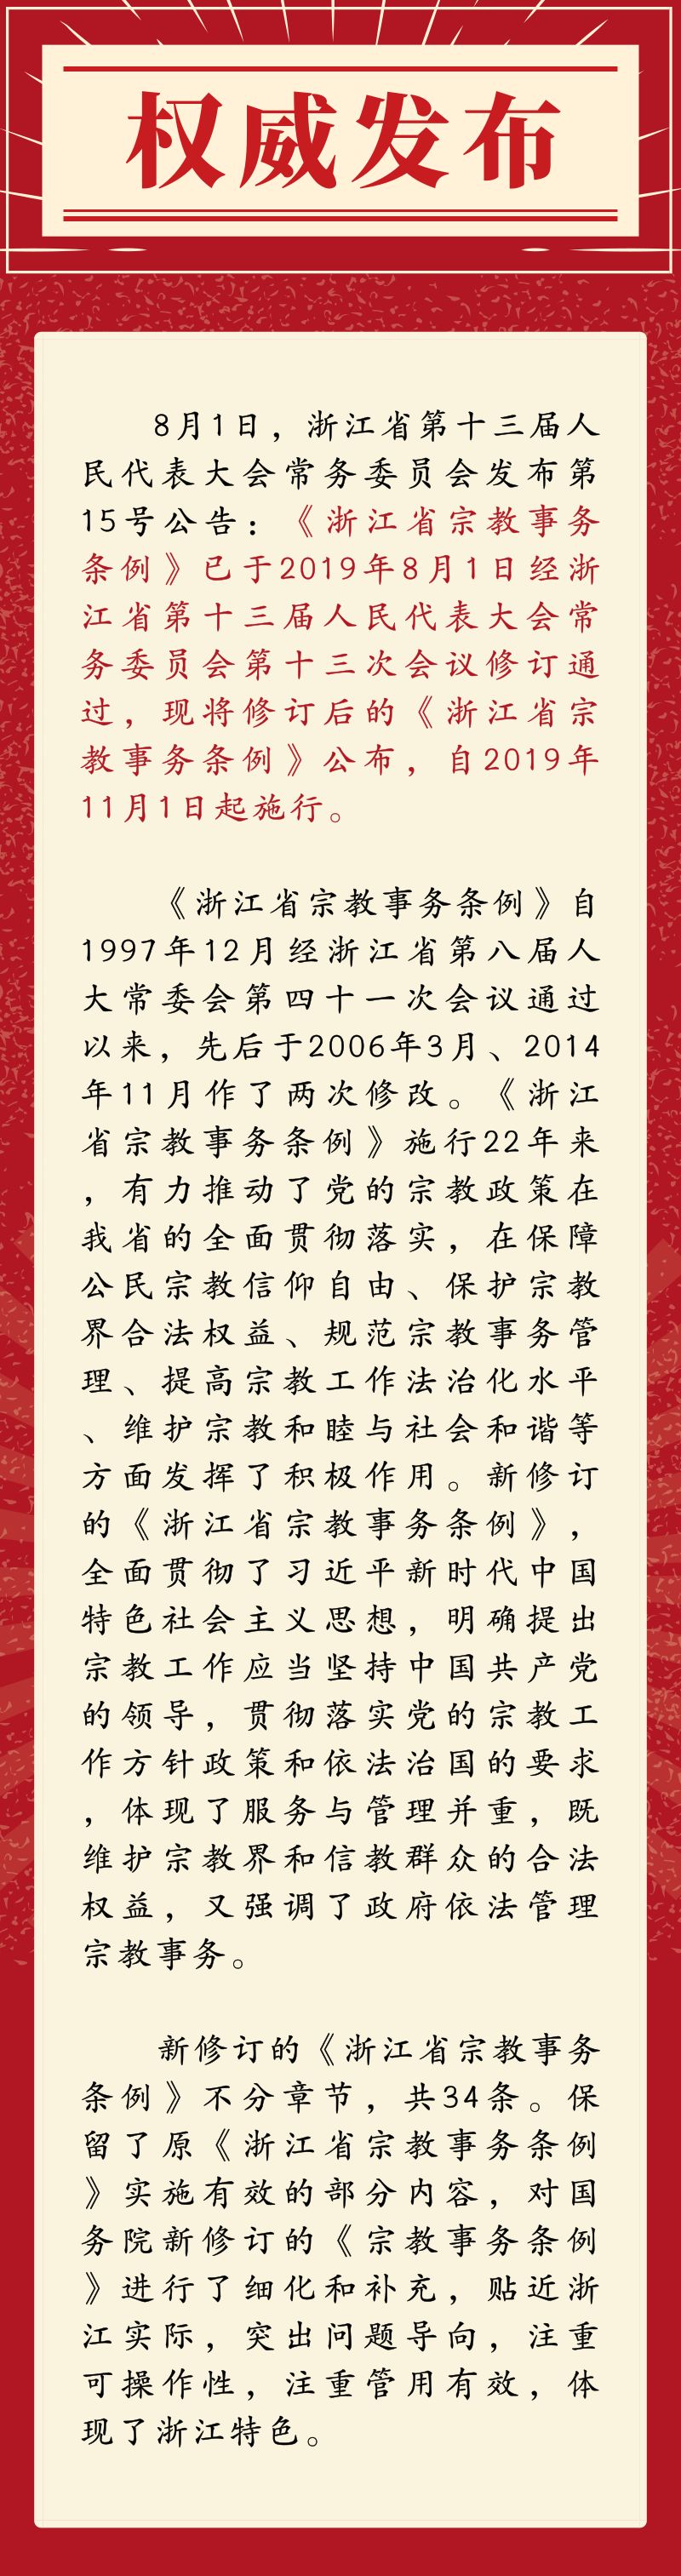 权威发布
8月1日，浙江省第十三届人
民代表大会常务委员会发布第
15号公告：《浙江省宗教事务
条例》已于2019年8月1日经浙
江省第十三届人民代表大会常
务委员会第十三次会议修订通
过，现将修订后的《浙江省宗
教事务条例》公布，自2019年
11月1日起施行。
《浙江省宗教事务条例》自
1997年12月经浙江省第八届人
大常委会第四十一次会议通过
以来，先后于2006年3月、2014
年11月作了两次修改。《浙江
省宗教事务条例》施行22年来
，有力推动了党的宗教政策在
我省的全面贯彻落实，在保障
公民宗教信仰自由、保护宗教
界合法权益、规范宗教事务管
理、提高宗教工作法治化水平
、维护宗教和睦与社会和谐等
方面发挥了积极作用。新修订
的《浙江省宗教事务条例》，
全面贯彻了习近平新时代中国
特色社会主义思想，明确提出
宗教工作应当坚持中国共产党
的领导，贯彻落实党的宗教工
作方针政策和依法治国的要求
，体现了服务与管理并重，既
维护宗教界和信教群众的合法
权益，又强调了政府依法管理
宗教事务。
新修订的《浙江省宗教事务
条例》不分章节，共34条。保
留了原《浙江省宗教事务条例
》实施有效的部分内容，对国
务院新修订的《宗教事务条例
》进行了细化和补充，贴近浙
江实际，突出问题导向，注重
可操作性，注重管用有效，体
现了浙江特色。